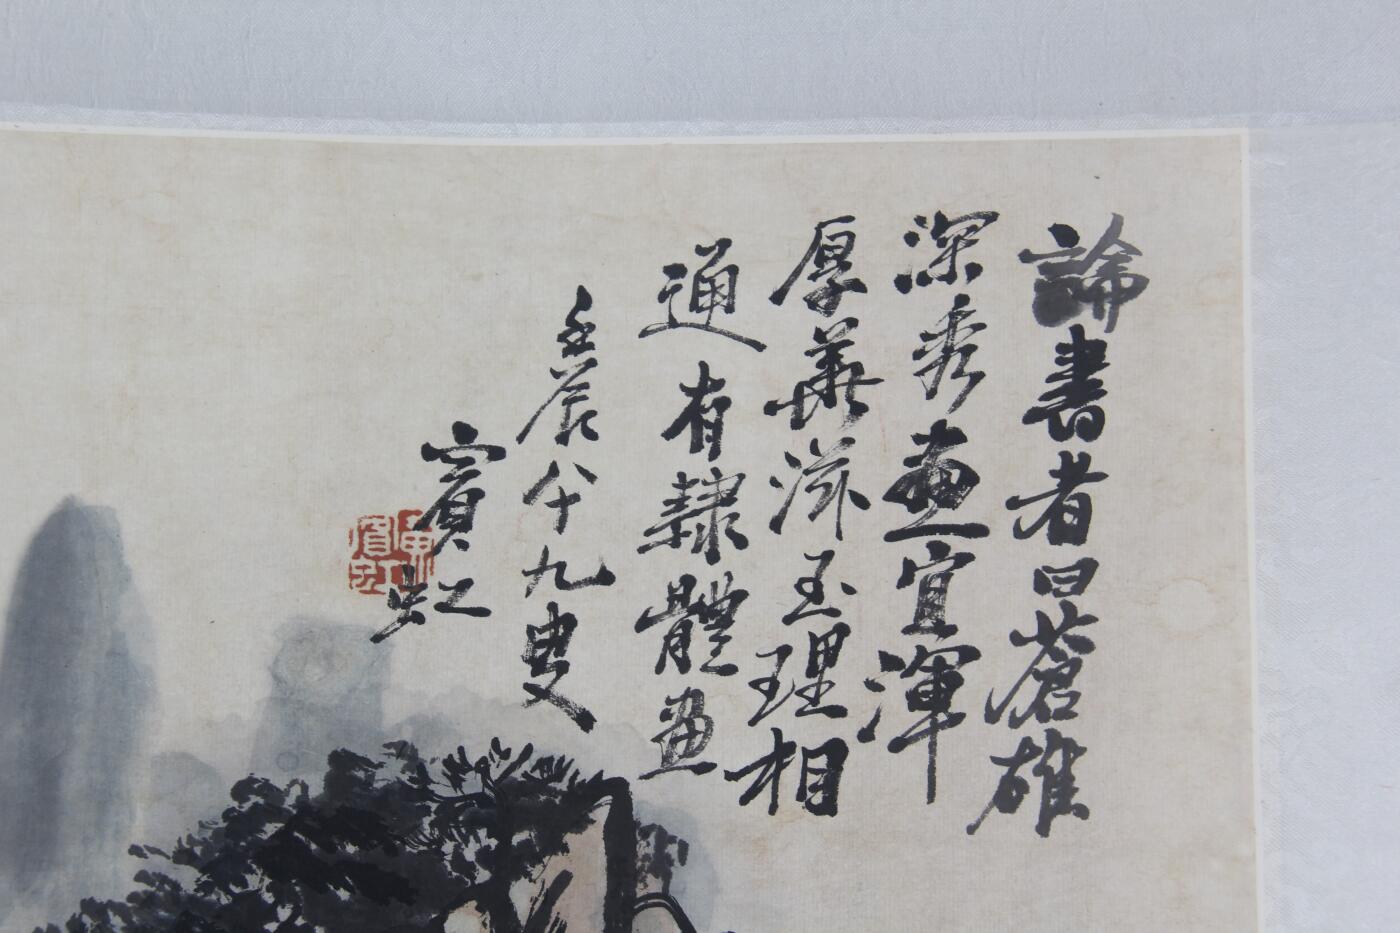 論書者曰蒼雄
深秀畫宜渾
厚華滋玉理相
通有隸體畫
壬辰八十九叟
賓虹
黃賓虹